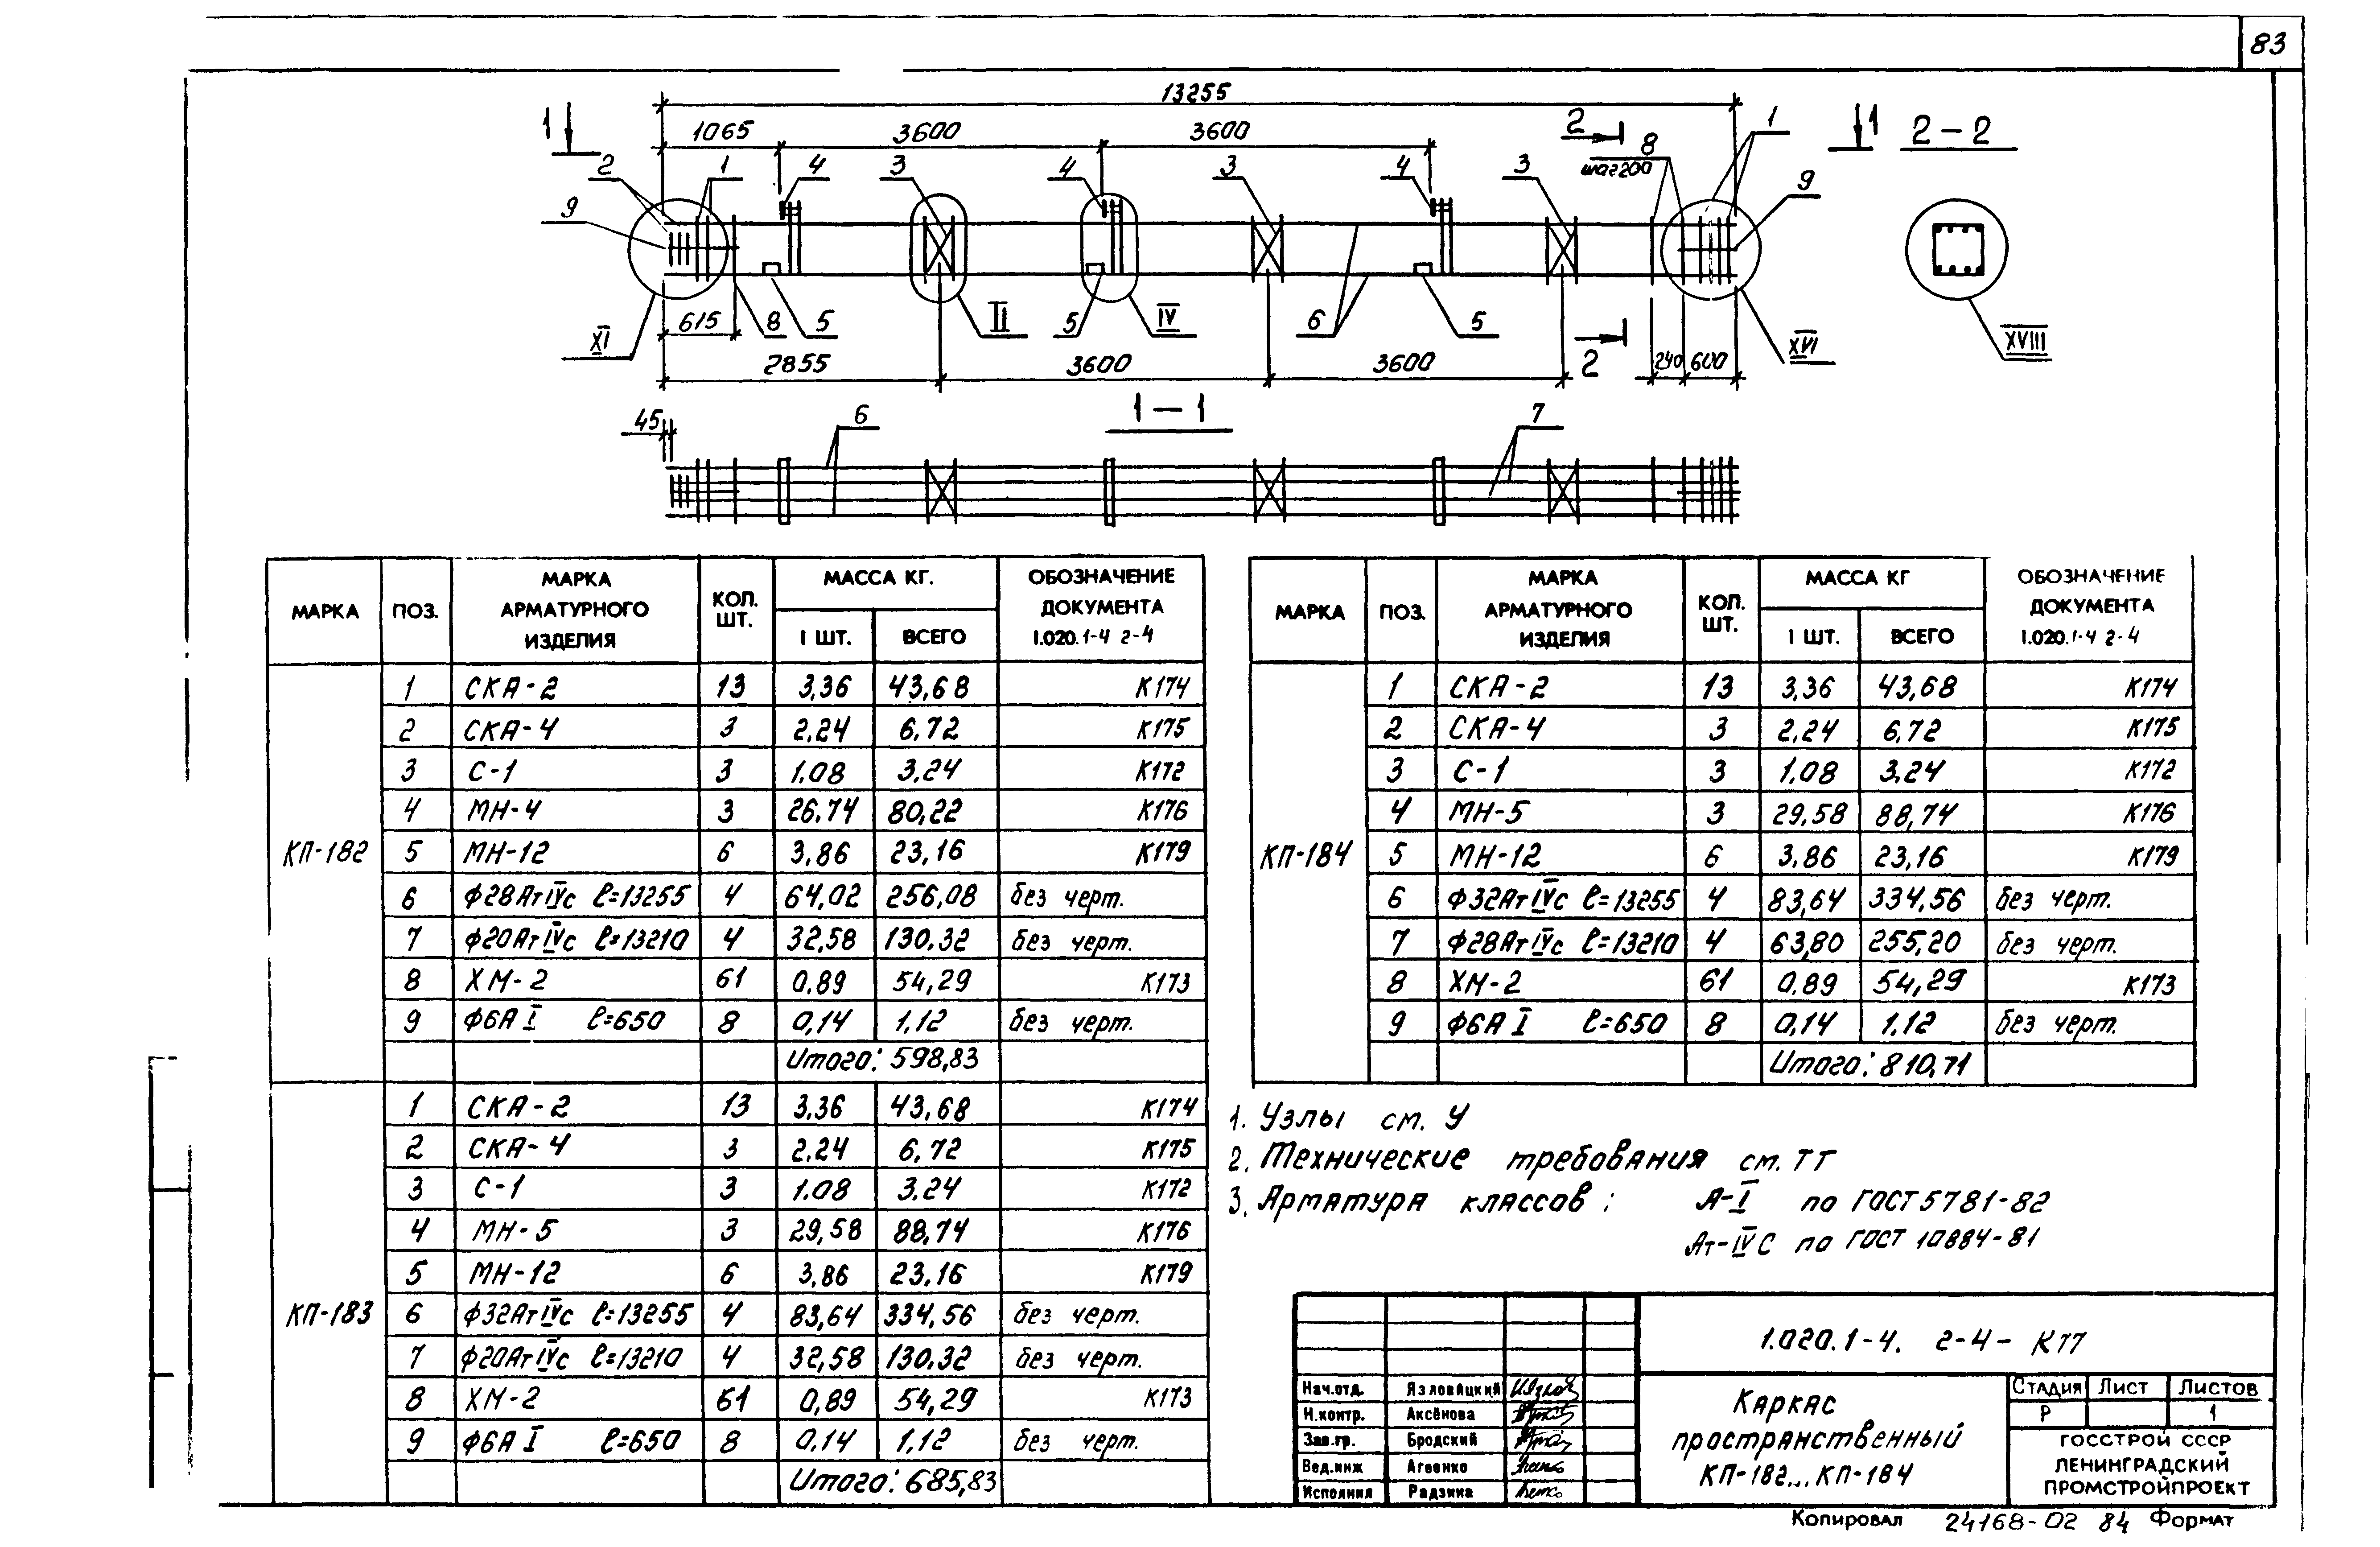 83
13255
1065 3600 3600
1 2 1 1 2 – 2
2 1 4 3 4 3 4 3 8 9
шаг 200
9
XI 615 8 5 II 5 IV 6 5 2 XVI XVIII
2855 3600 3600 240 600
1 – 1
45 6 7
МАРКА ПОЗ. МАРКА АРМАТУРНОГО ИЗДЕЛИЯ КОЛ. ШТ. МАССА КГ. ОБОЗНАЧЕНИЕ ДОКУМЕНТА 1.020.1-4 2-4
1 ШТ. ВСЕГО
КП-182
1 СКА-2 13 3,36 43,68 К174
2 СКА-4 3 2.24 6,72 К175
3 С-1 3 1.08 3,24 К172
4 МН-4 3 26,74 80,22 К176
5 МН-12 6 3,86 23,16 К179
6 ф28АтIVс ℓ=13255 4 64,02 256,08 без черт.
7 ф20АтIVс ℓ=13210 4 32,58 130,32 без черт.
8 ХМ-2 61 0,89 54,29 К173
9 ф6А I ℓ=650 8 0,14 1,12 без черт.
Итого: 598,83
КП-183
1 СКА-2 13 3,36 43,68 К174
2 СКА-4 3 2.24 6,72 К175
3 С-1 3 1.08 3,24 К172
4 МН-5 3 29,58 88,74 К176
5 МН-12 6 3,86 23,16 К179
6 ф32АтIVс ℓ=13255 4 83,64 334,56 без черт.
7 ф20АтIVс ℓ=13210 4 32,58 130,32 без черт.
8 ХМ-2 61 0,89 54,29 К173
9 ф6А I ℓ=650 8 0,14 1,12 без черт.
Итого: 685,83
МАРКА ПОЗ. МАРКА АРМАТУРНОГО ИЗДЕЛИЯ КОЛ. ШТ. МАССА КГ ОБОЗНАЧЕНИЕ ДОКУМЕНТА 1.020.1-4 2-4
1 ШТ. ВСЕГО
КП-184
1 СКА-2 13 3,36 43,68 К174
2 СКА-4 3 2,24 6,72 К175
3 С-1 3 1.08 3,24 К172
4 МН-5 3 29,58 88,74 К176
5 МН-12 6 3,86 23,16 К179
6 ф32АтIVс ℓ=13255 4 83,64 334,56 без черт.
7 ф28АтIVс ℓ=13210 4 63,80 255,20 без черт.
8 ХМ-2 61 0,89 54,29 К173
9 ф6А I ℓ=650 8 0,14 1,12 без черт.
Итого: 810,71
1. Узлы см. У
2. Технические требования см. ТТ
3. Арматура классов: А-I по ГОСТ 5781-82
Ат-IVС по ГОСТ 10884-81
1.020.1-4. 2-4- К77
Нач.отд. Язловицкий
Н.контр. Аксёнова
Зав.гр. Бродский
Вед.инж Агеенко
Исполнил Радзина
Каркас
пространственный
КП-182...КП-184
Стадия Лист Листов
Р 1
ГОССТРОЙ СССР
ЛЕНИНГРАДСКИЙ
ПРОМСТРОЙПРОЕКТ
Копировал 24168-02 84 Формат